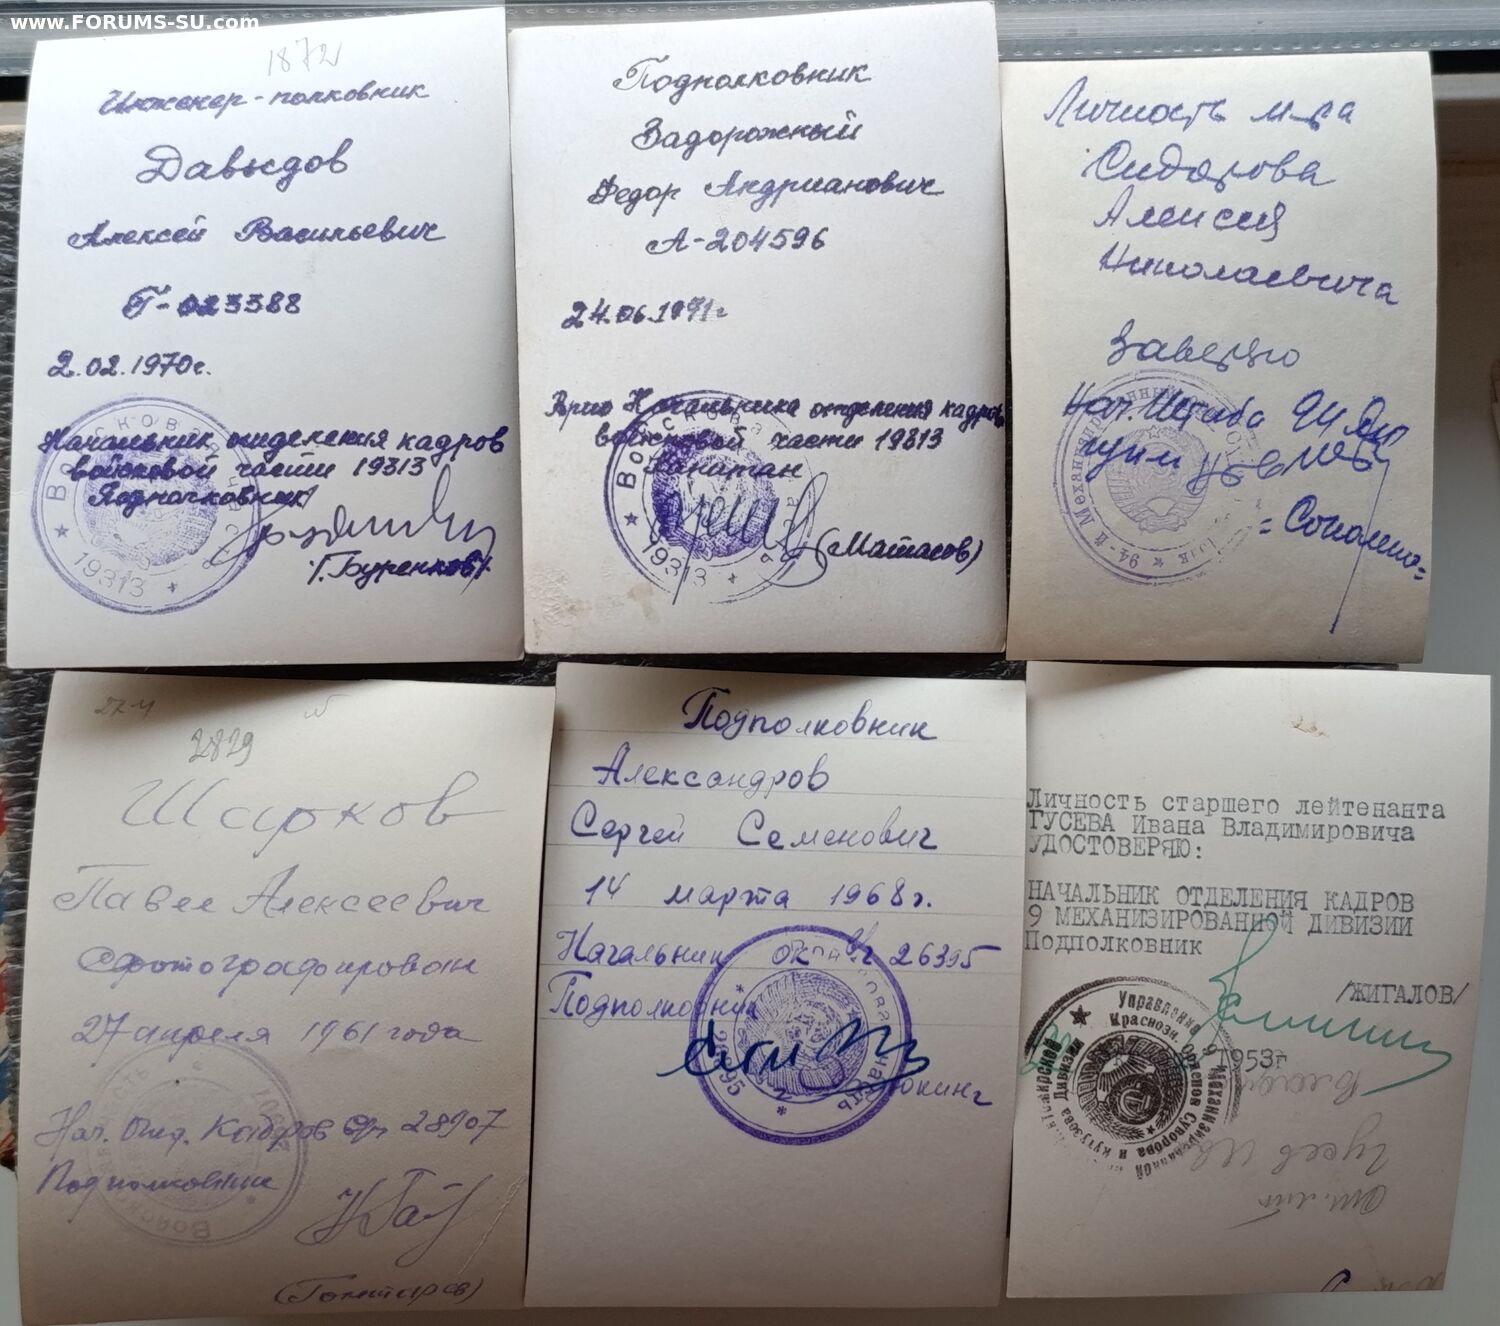 www.FORUMS-SU.com
1872
Инженер-полковник
Давыдов
Алексей Васильевич
Г-023388
2.02.1970г.
Начальник отделения кадров
войсковой части 19313
Подполковник
(Г. Буренков)
ВОЙСКОВАЯ
19313
Подполковник
Задорожный
Федор Андрианович
А-204596
24.06.1971г
Врио Начальника отделения кадров
войсковой части 19313
Капитан
(Матасов)
19313
Личность м-ра
Сидорова
Алексея
Николаевича
Заверяю
Нач. Штаба 94
94-й Механизированный
27-4
2829
Шарков
Павел Алексеевич
Сфотографирован
27 апреля 1961 года
Нач. Отд. Кадров в/ч 28907
Подполковник
Подполковник
Александров
Сергей Семенович
14 марта 1968г.
Начальник ОК в/ч 26395
Подполковник
Личность старшего лейтенанта
ГУСЕВА Ивана Владимировича
УДОСТОВЕРЯЮ:
НАЧАЛЬНИК ОТДЕЛЕНИЯ КАДРОВ
9 МЕХАНИЗИРОВАННОЙ ДИВИЗИИ
Подполковник
/ЖИГАЛОВ/
1953г
Управление 9 Механизированной
Краснозн. Орденов Суворова и Кутузова Дивизии
Гусев Ив